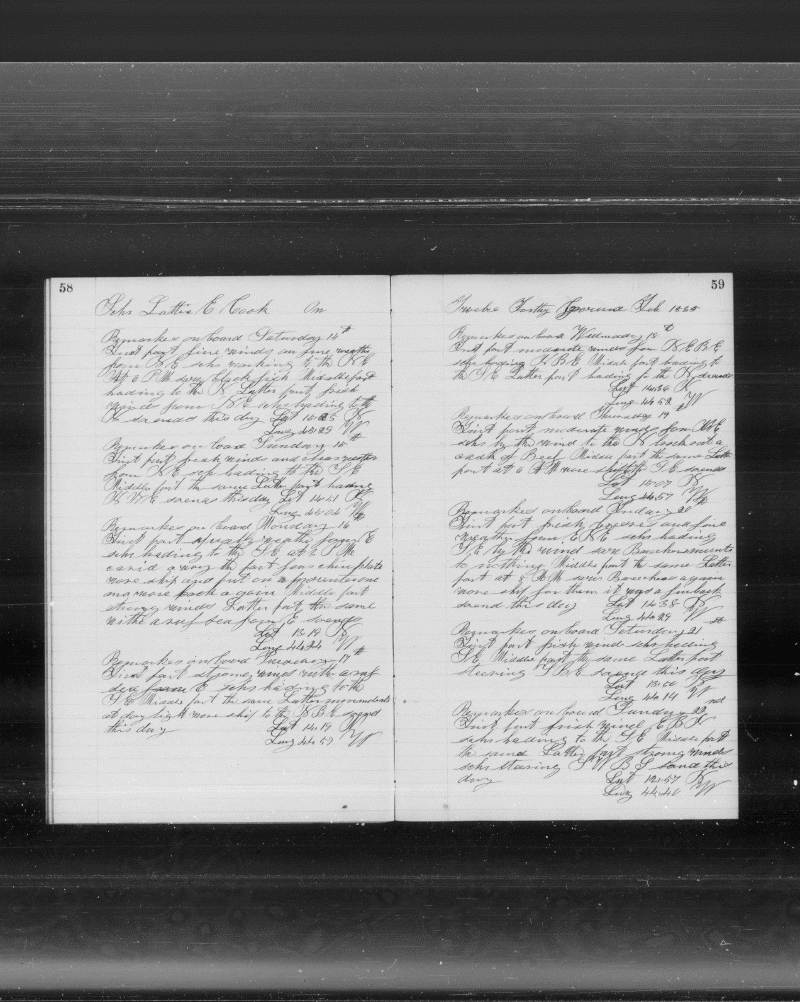 58
Schr Lottie E Cook On
Remarkes on board Saturday 14th
First part fine winds an fine weather
from N E schr working to the N E
At 6 P M saw black fish Middle part
heading to the N Latter part fresh
winds from N E schr heading to the
N so ends this day Lat 14.25 N
Long 44.29 W
Remarkes on board Sunday 15th
First part fresh winds and clear weather
from N E schr heading to the S E
Middle part the same Latter part heading
so ends this day Lat 14.41 N
Long 44.04 W
Remarkes on board Monday 16
First part squally weather from E
schr heading to the S E at 2 P M
carid away the port fore chin plate
wore ship and put on a
wore back again Middle part
strong winds Latter part the same
withe a ruf sea from E so ends
Lat 13.19 N
Long 44.24 W
Remarkes on board Tuesday 17th
First part strong winds withe a ruf
sea from E schr heading to the
S E Middle part the same Latter more moderate
at day light wore ship to the N B E so ends
this day Lat 14.19 N
Long 44.57 W
59
Twelve Forthy Ground Feb 1885
Remarkes on board Wednesday 18th
First part moderate winds from N E B E
schr heading N B E Middle part heading to
the S E Latter part heading to the N so ends
Lat 14.36 N
Long 44.52 W
Remarkes on board Thursday 19th
First part moderate winds from
schr by the wind to the N broch out a
cask of Beef Middle part the same Latter
part at 6 A M wore ship to the S E so ends
Lat 15.07 N
Long 44.57 W
Remarkes on board Friday 20
First part fresh breeses and fine
weather from E N E schr heading
S E by the wind saw
to nothing Middle part the same Latter
part at 8 A M again
wore ship for them it was a finback
so end this day Lat 14.38 N
Long 44.29 W
Remarkes on board Saturday 21st
First part fresh winds schr heading
S E Middle part the same Latter part
steering S B E so ends this day
Lat
Long 44.14 W
Remarkes on board Sunday 22nd
First part fresh winds E B N
schr heading to the S E Middle part
the same Latter part strong winds
schr stearing S W B S so ends this
day Lat 12.57 N
Long 44.40 W